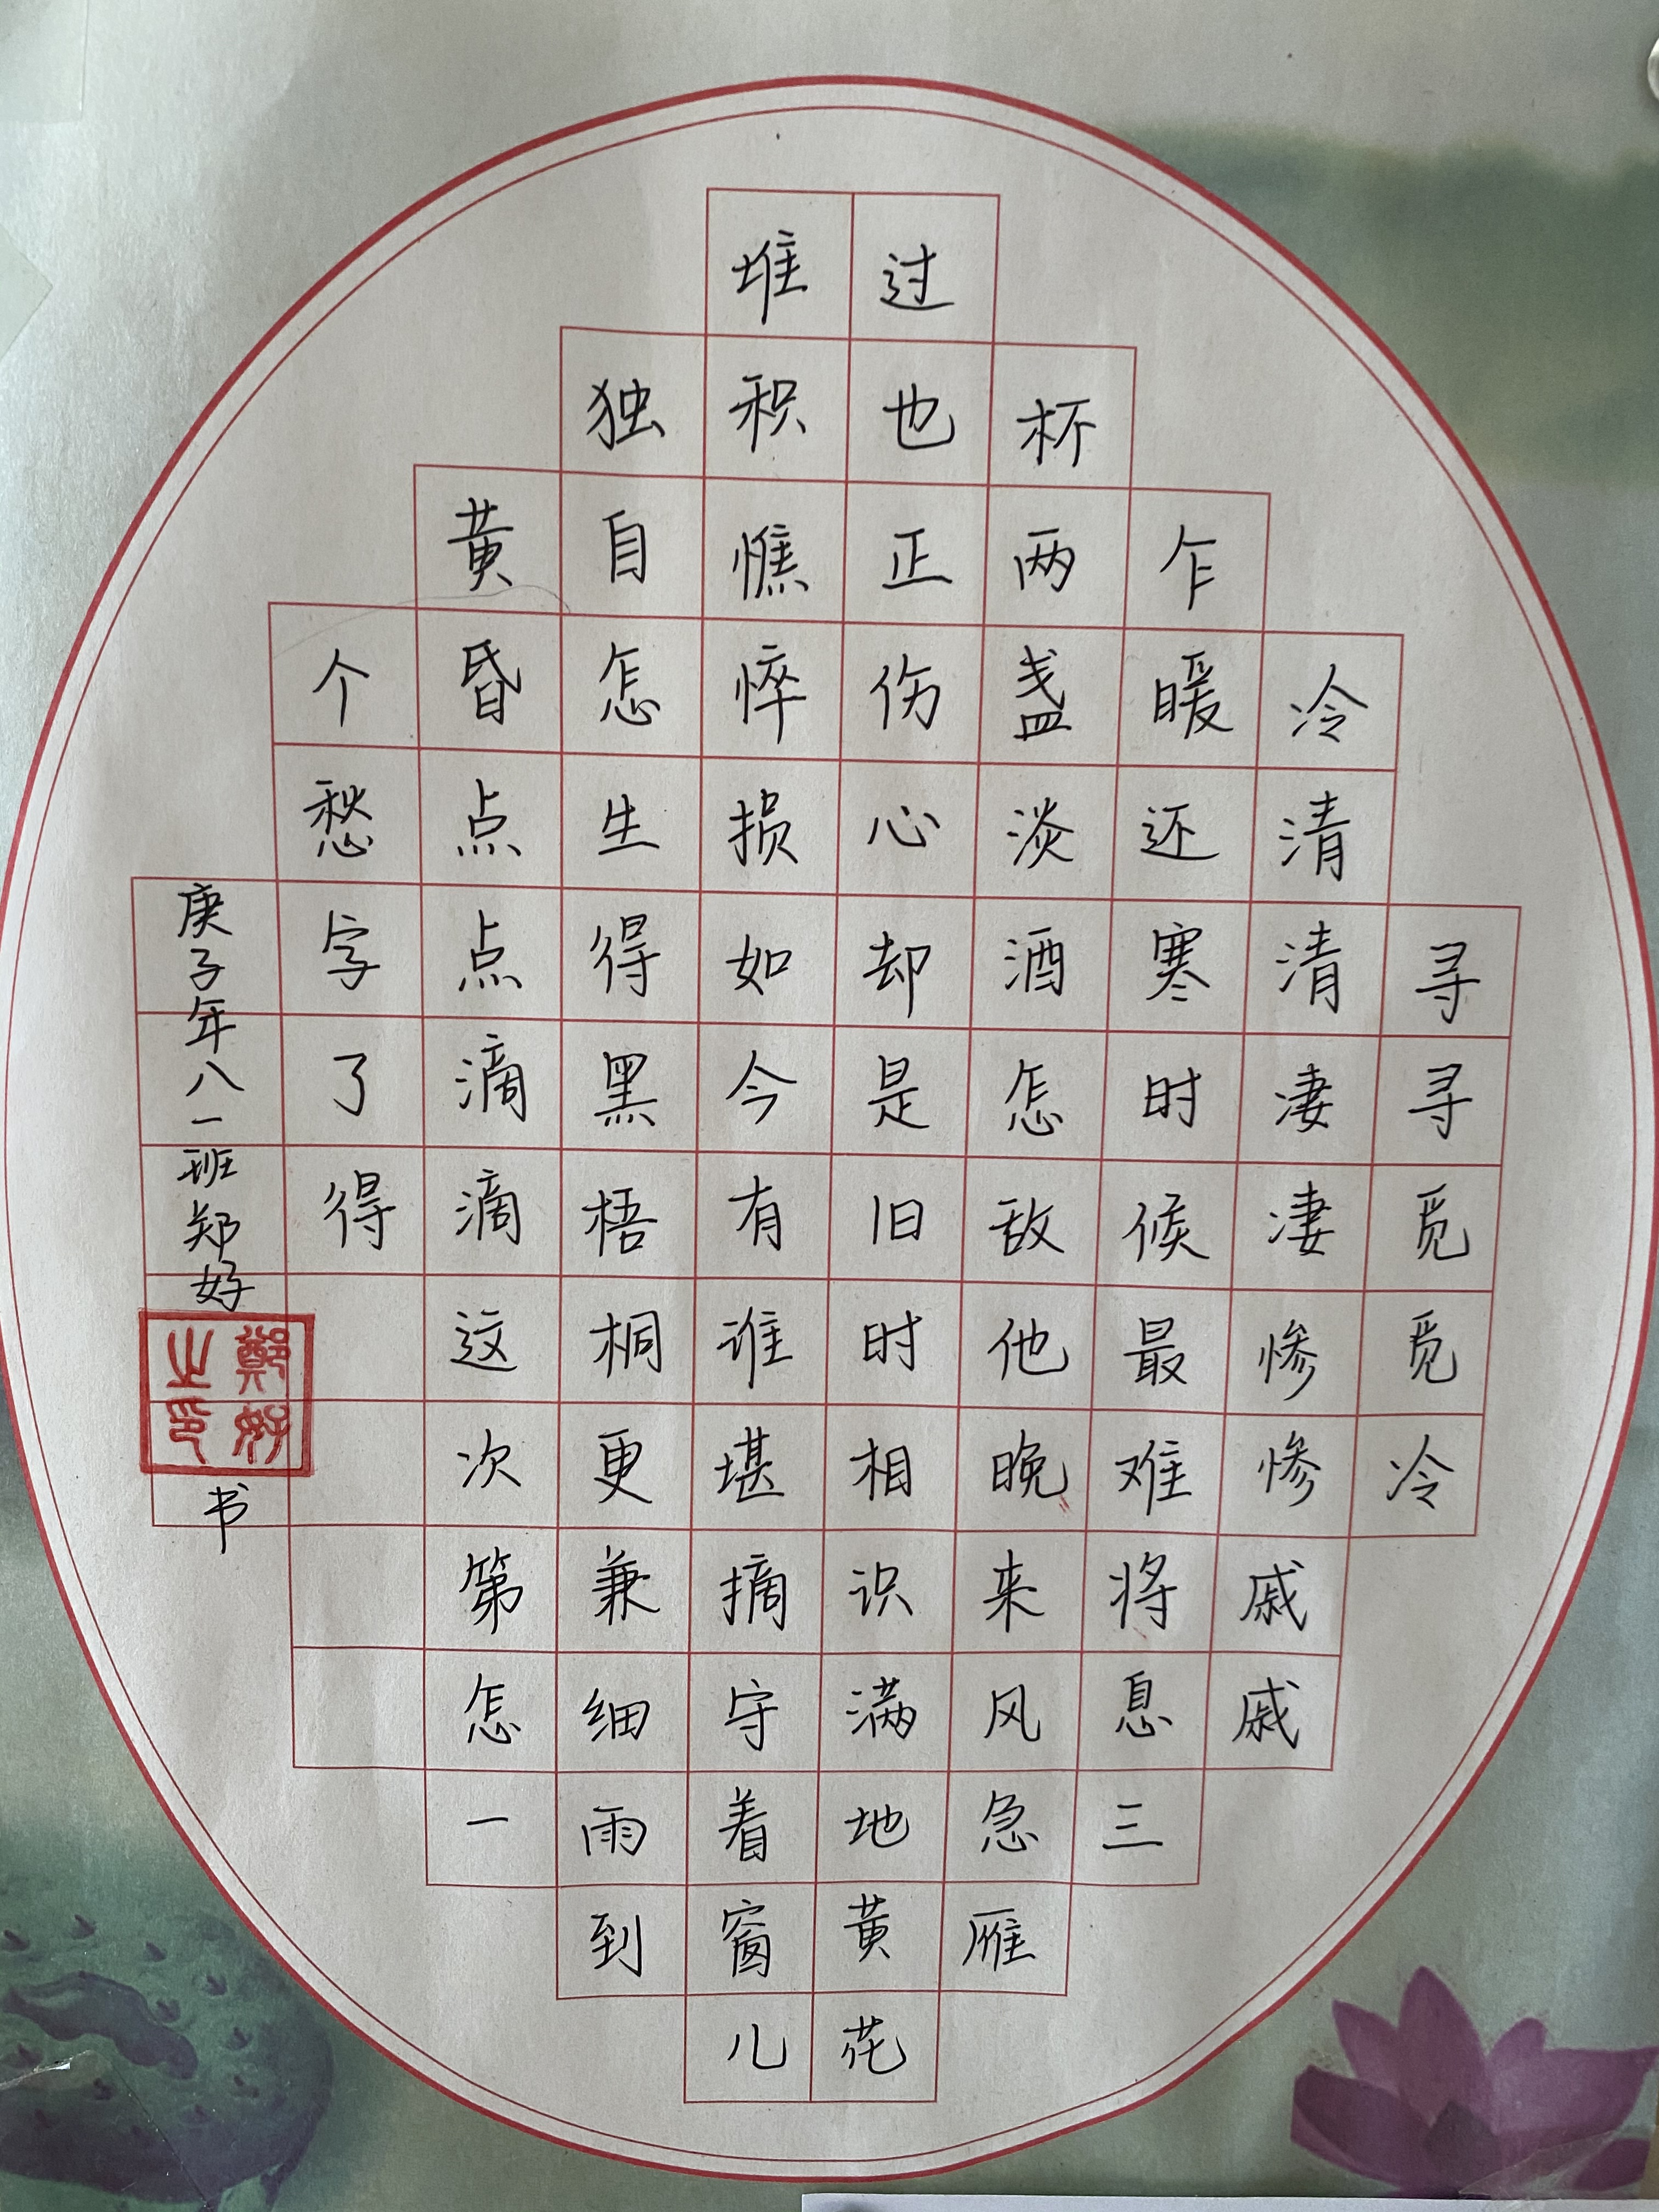 寻寻觅觅冷
冷清清凄凄惨惨戚戚
乍暖还寒时候最难将息三
杯两盏淡酒怎敌他晚来风急雁
过也正伤心却是旧时相识满地黄花
堆积憔悴损如今有谁堪摘守着窗儿
独自怎生得黑梧桐更兼细雨到
黄昏点点滴滴这次第怎一
个愁字了得
庚子年八一班郑好
鄭好之印
书